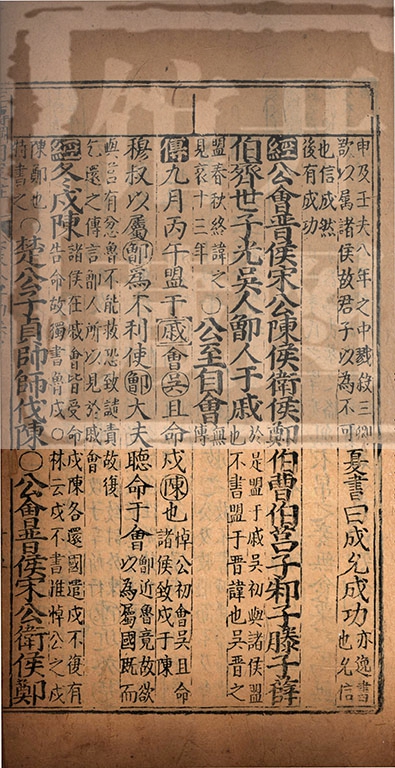 申及壬夫八年之中戮殺三卿
欲以屬諸侯故君子以為不可
夏書曰成允成功
亦逸書
也允信
也信成然
後有成功
經公會晉侯宋公陳侯衛侯鄭伯曹伯莒子邾子滕子薛
伯齊世子光吳人鄫人于戚
於是盟于戚吳初與諸侯盟
也不書盟于晉諱也吳晉之
盟春秋終諱之
見哀十三年
○公至自會
無傳
傳九月丙午盟于戚會吳且命戍陳也
悼公初會吳且命
諸侯致戍于陳
穆叔以屬鄫為不利使鄫大夫聽命于會
鄫近魯竟故欲
以為屬國既而
與莒有忿魯不能救恐致譴責故復
乞還之傳言鄫人所以見於戚會
經冬戍陳
諸侯在戚會皆受命戍陳各還國遣戍不復有
告命故獨書魯戍○林云戍不書惟悼公之戍
陳鄭也
特書之
○楚公子貞帥師伐陳○公會晉侯宋公衛侯鄭